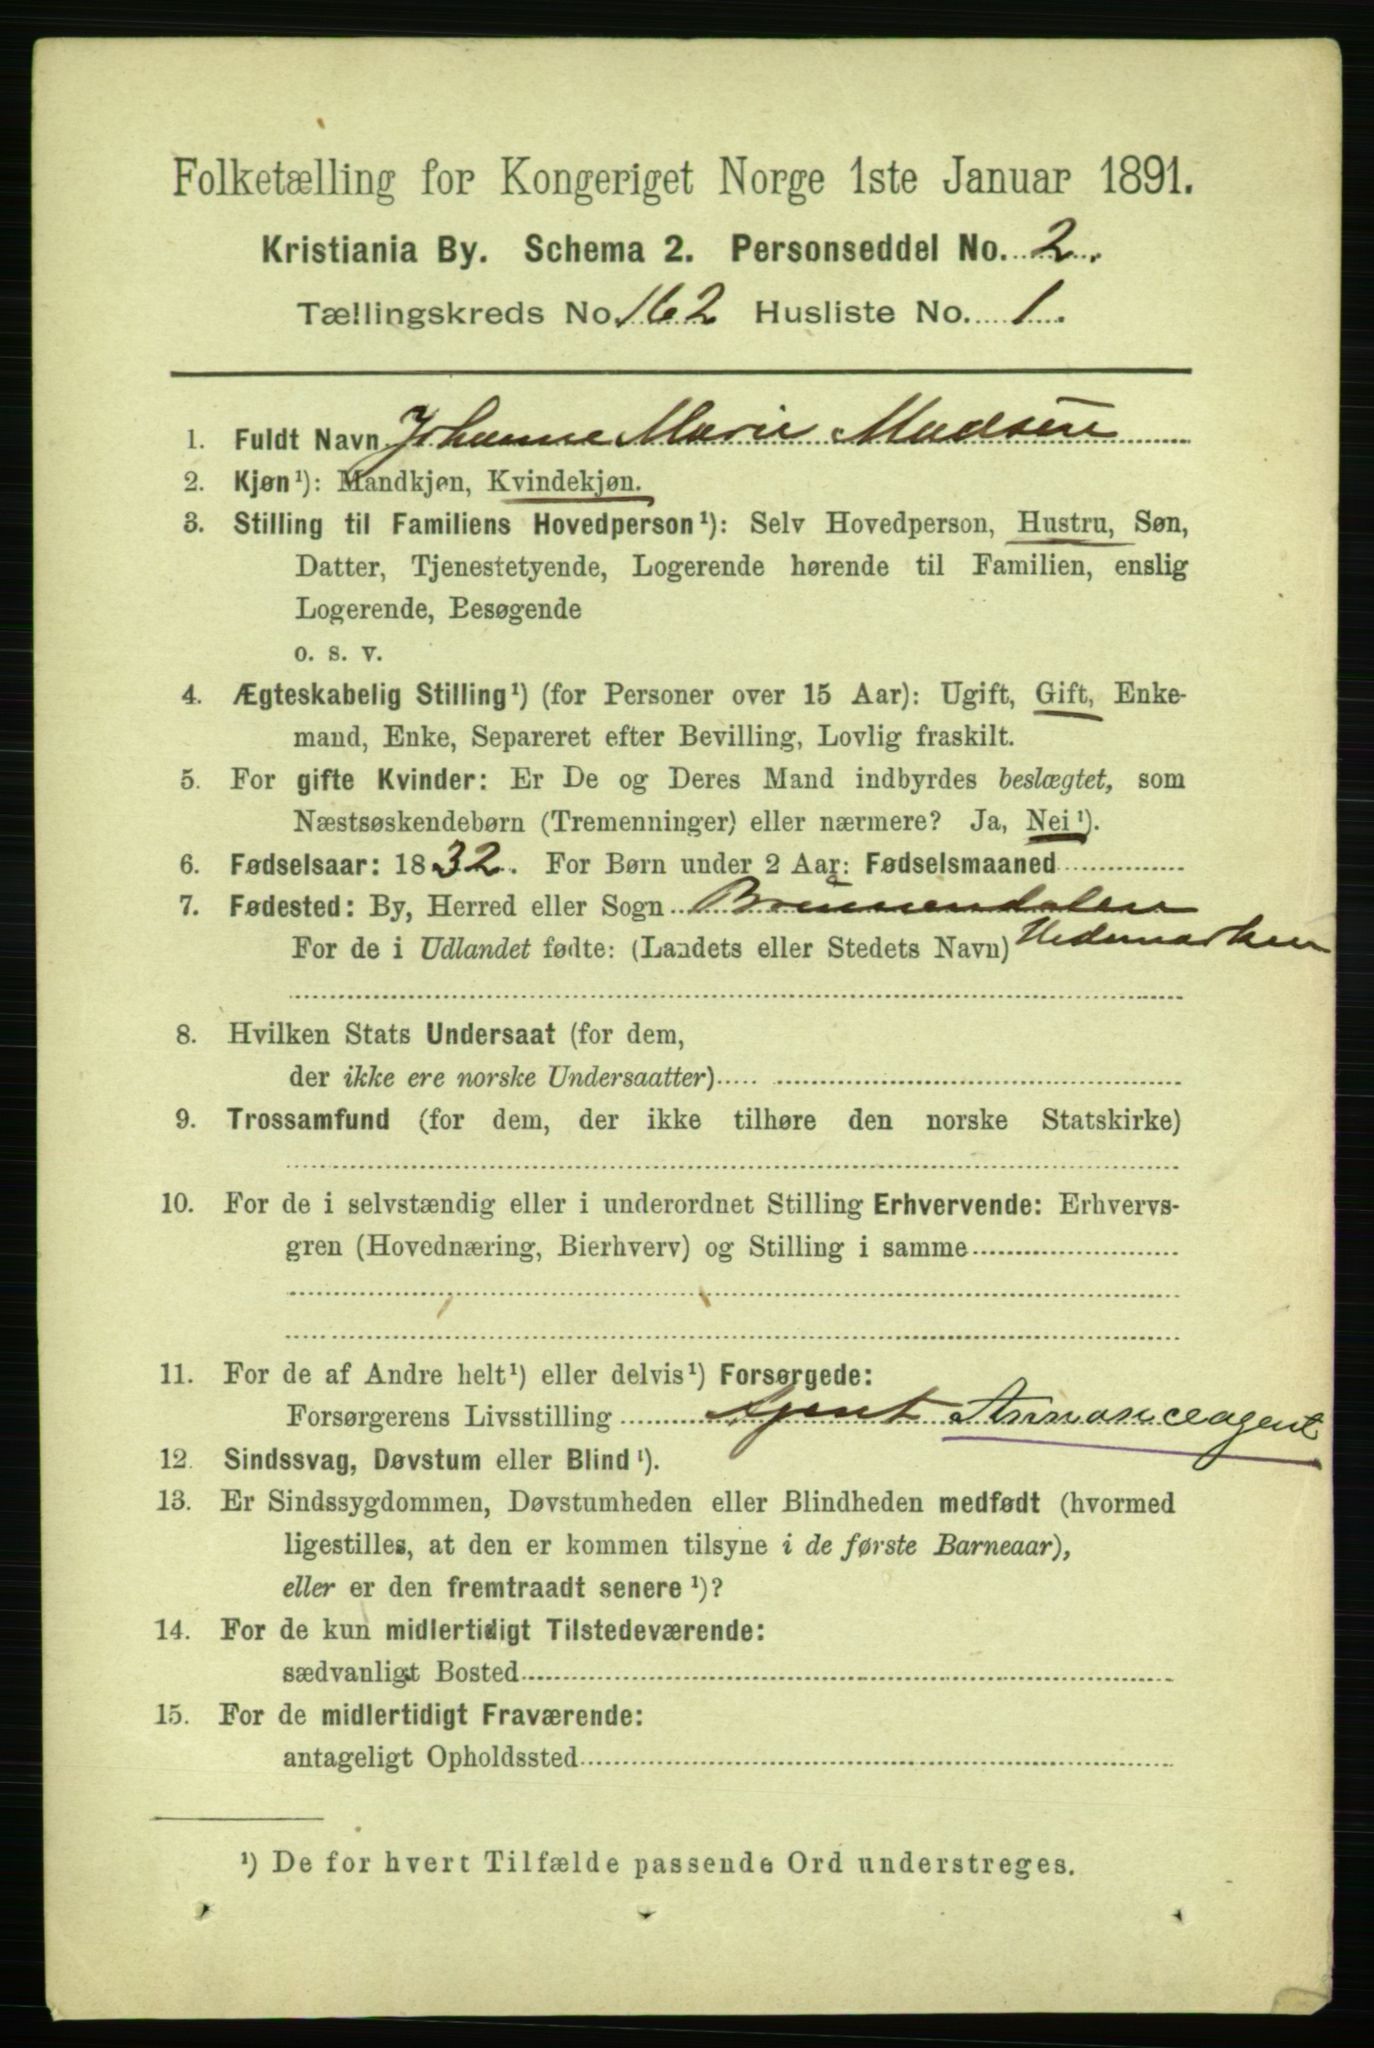 Folketælling for Kongeriget Norge 1ste Januar 1891.
Kristiania By. Schema 2. Personseddel No. 2.
Tællingskreds No. 162 Husliste No. 1.
1. Fuldt Navn Johanne Marie Madsen
2. Kjøn¹): Mandkjøn, Kvindekjøn.
3. Stilling til Familiens Hovedperson¹): Selv Hovedperson, Hustru, Søn,
Datter, Tjenestetyende, Logerende hørende til Familien, enslig
Logerende, Besøgende
o. s. v.
4. Ægteskabelig Stilling¹) (for Personer over 15 Aar): Ugift, Gift, Enke-
mand, Enke, Separeret efter Bevilling, Lovlig fraskilt.
5. For gifte Kvinder: Er De og Deres Mand indbyrdes beslægtet, som
Næstsøskendebørn (Tremenninger) eller nærmere? Ja, Nei¹).
6. Fødselsaar: 1832. For Børn under 2 Aar: Fødselsmaaned
7. Fødested: By, Herred eller Sogn Brummendalen
For de i Udlandet fødte: (Landets eller Stedets Navn) Hedemarken
8. Hvilken Stats Undersaat (for dem,
der ikke ere norske Undersaatter)
9. Trossamfund (for dem, der ikke tilhøre den norske Statskirke)
10. For de i selvstændig eller i underordnet Stilling Erhvervende: Erhvervs-
gren (Hovednæring, Bierhverv) og Stilling i samme
11. For de af Andre helt¹) eller delvis¹) Forsørgede:
Forsørgerens Livsstilling Agent Annonceagent
12. Sindssvag, Døvstum eller Blind¹).
13. Er Sindssygdommen, Døvstumheden eller Blindheden medfødt (hvormed
ligestilles, at den er kommen tilsyne i de første Barneaar),
eller er den fremtraadt senere¹)?
14. For de kun midlertidigt Tilstedeværende:
sædvanligt Bosted
15. For de midlertidigt Fraværende:
antageligt Opholdssted
¹) De for hvert Tilfælde passende Ord understreges.